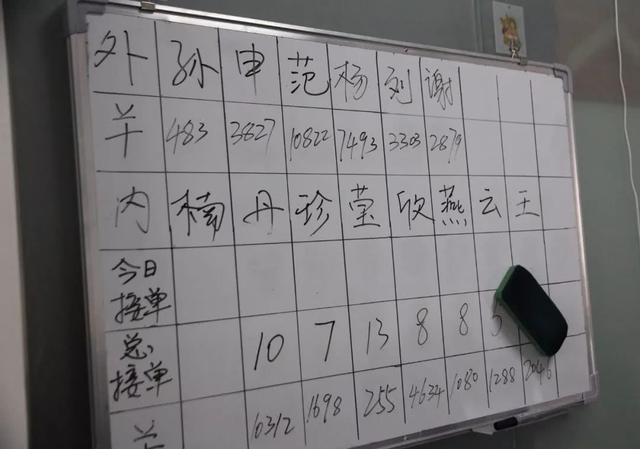 外 孙 申 范 杨 刘 谢
羊 483 3827 10822 7493 3303 2879
内 楠 丹 珍 莹 欣 燕 云 王
今日接单
总接单 10 7 13 8 8
羊 6312 1698 255 4634 1080 1288 2046